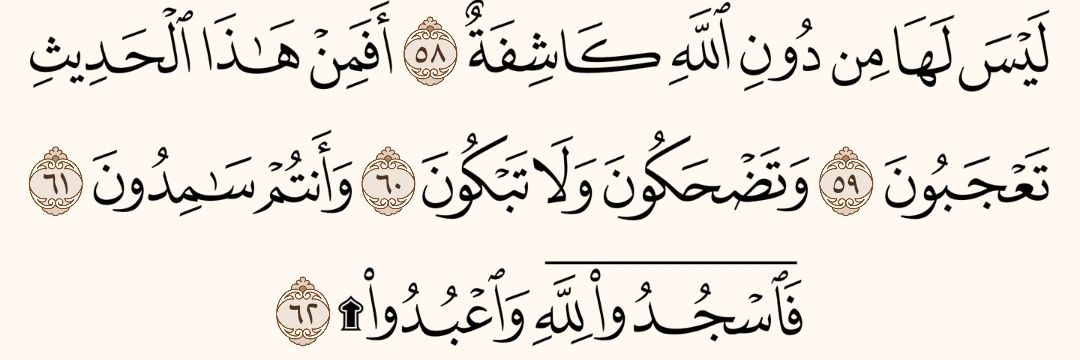 لَيْسَ لَهَا مِن دُونِ ٱللَّهِ كَاشِفَةٌ ٥٨ أَفَمِنْ هَـٰذَا ٱلْحَدِيثِ
تَعْجَبُونَ ٥٩ وَتَضْحَكُونَ وَلَا تَبْكُونَ ٦٠ وَأَنتُمْ سَـٰمِدُونَ ٦١
فَٱسْجُدُوا۟ لِلَّهِ وَٱعْبُدُوا۟ ۩ ٦٢